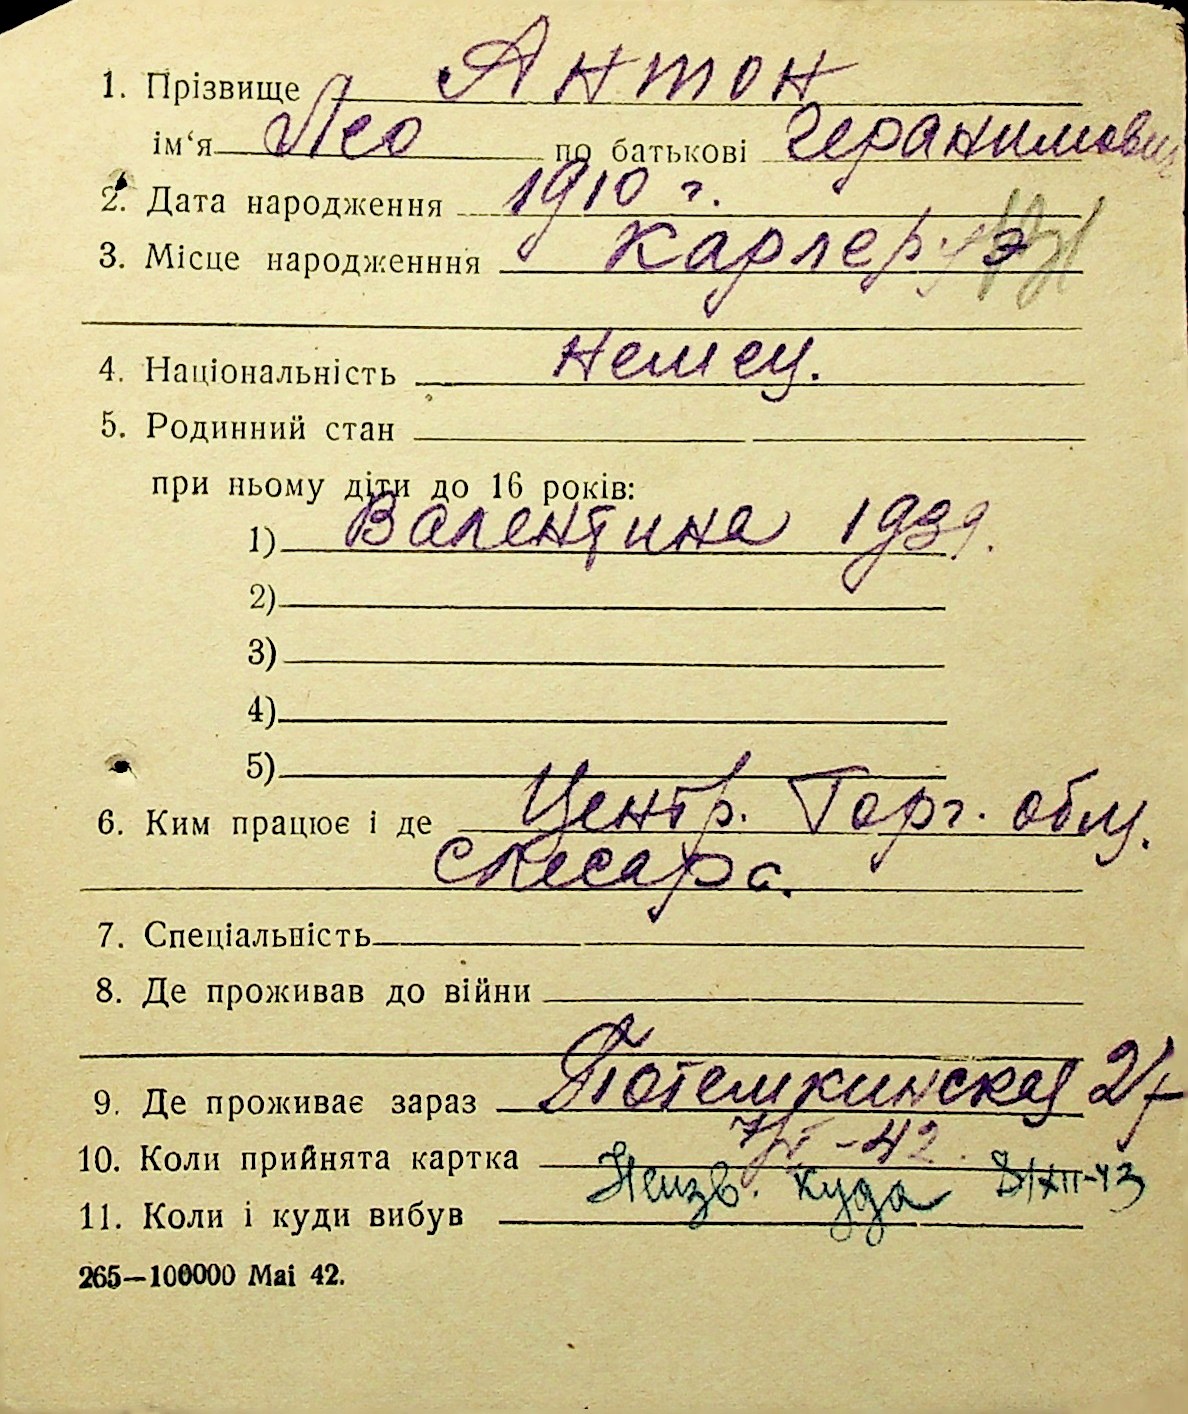 1. Прізвище Антон
ім‘я Лео по батькові Геранимович
2. Дата народження 1910 г.
3. Місце народженння Карлеруэ
4. Національність немец.
5. Родинний стан
при ньому діти до 16 років:
1) Валентина 1939.
2)
3)
4)
5)
6. Ким працює і де Центр. Торг. общ.
слесарс.
7. Спеціальність
8. Де проживав до війни
9. Де проживає зараз Потемкинская 27
10. Коли прийнята картка -42.
11. Коли і куди вибув Неизв. куда 8/XII-43
265—100000 Mai 42.